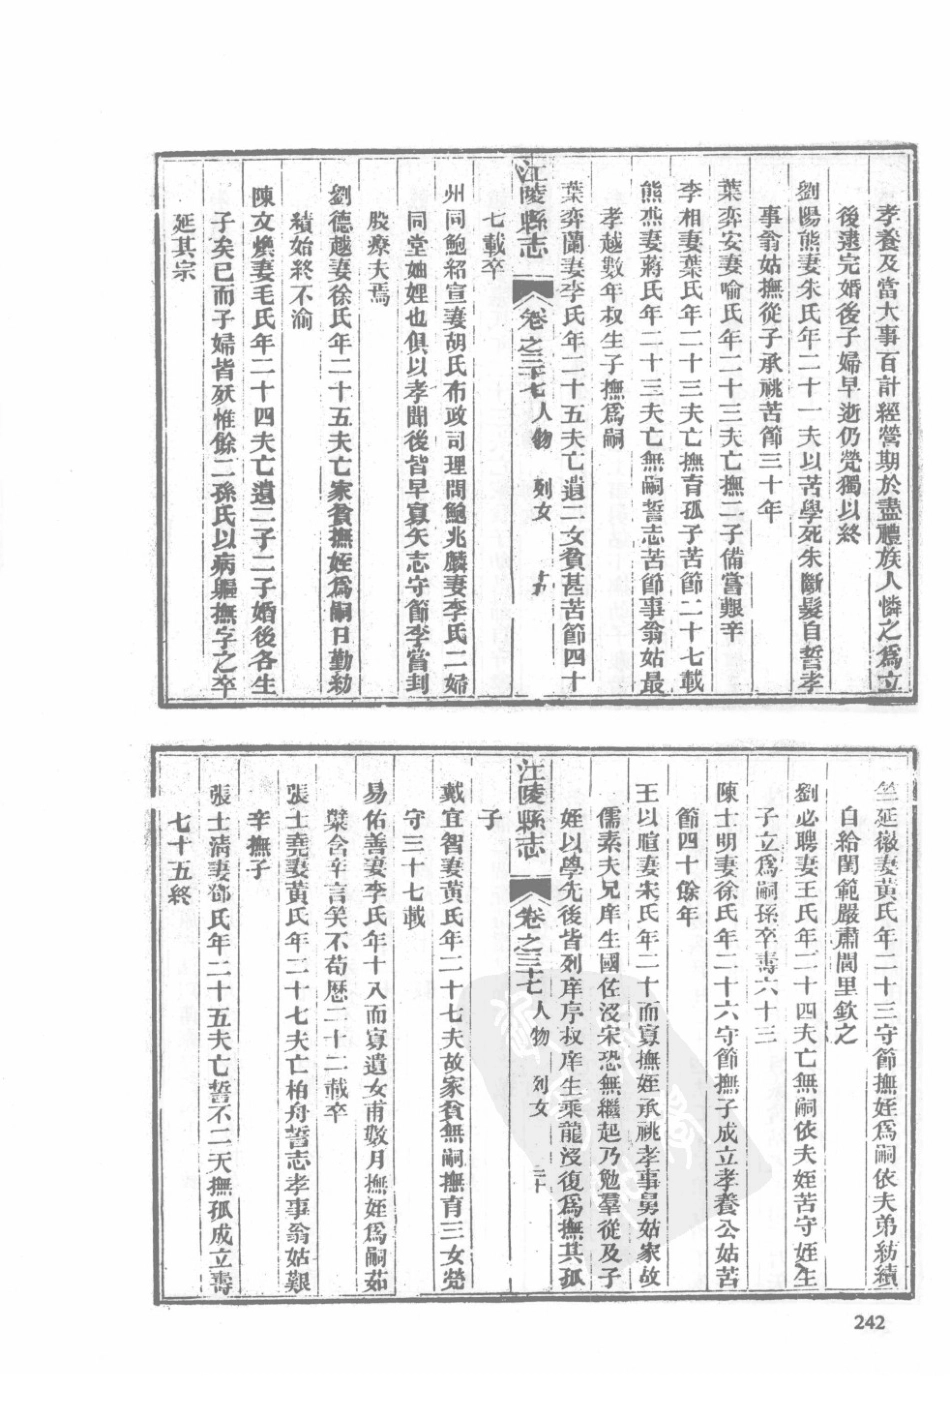 孝養及當大事百計經營期於盡禮族人憐之爲立
後逮完婚後子婦早逝仍煢獨以終
劉陽熊妻朱氏年二十一夫以苦學死朱斷髮自誓孝
事翁姑撫從子承祧苦節三十年
葉弈安妻喻氏年二十三夫亡撫二子備嘗艱辛
李相妻葉氏年二十三夫亡撫育孤子苦節二十七載
熊燕妻蔣氏年二十三夫亡無嗣誓志苦節事翁姑最
孝越數年叔生子撫爲嗣
葉弈蘭妻李氏年二十五夫亡遺二女貧甚苦節四十
江陵縣志 卷之三十七 人物 列女 十九
七載卒
州同鮑紹宣妻胡氏布政司理問鮑兆麟妻李氏二婦
同堂妯娌也俱以孝聞後皆早寡矢志守節李嘗刲
股療夫焉
劉德越妻徐氏年二十五夫亡家貧撫姪爲嗣日勤紡
績始終不渝
陳文煥妻毛氏年二十四夫亡遺二子二子婚後各生
子矣已而子婦皆歿惟餘二孫氏以病軀撫字之卒
延其宗
竺延徽妻黃氏年二十三守節撫姪爲嗣依夫弟紡績
自給閨範嚴肅閭里欽之
劉必聘妻王氏年二十四夫亡無嗣依夫姪苦守姪生
子立爲嗣孫卒壽六十三
陳士明妻徐氏年二十六守節撫子成立孝養公姑苦
節四十餘年
王以暄妻宋氏年二十而寡撫姪承祧孝事舅姑家故
儒素夫兄庠生國佐沒宋恐無繼起乃勉羣從及子
姪以學先後皆列庠序叔庠生乘龍沒復爲撫其孤
江陵縣志 卷之三十七 人物 列女 二十
子
戴宜智妻黃氏年二十七夫故家貧無嗣撫育三女煢
守三十七載
易佑善妻李氏年十八而寡遺女甫數月撫姪爲嗣茹
檗含辛言笑不苟歷二十二載卒
張士堯妻黃氏年二十七夫亡柏舟誓志孝事翁姑艱
辛撫子
張士清妻鄧氏年二十五夫亡誓不二天撫孤成立壽
七十五終
242